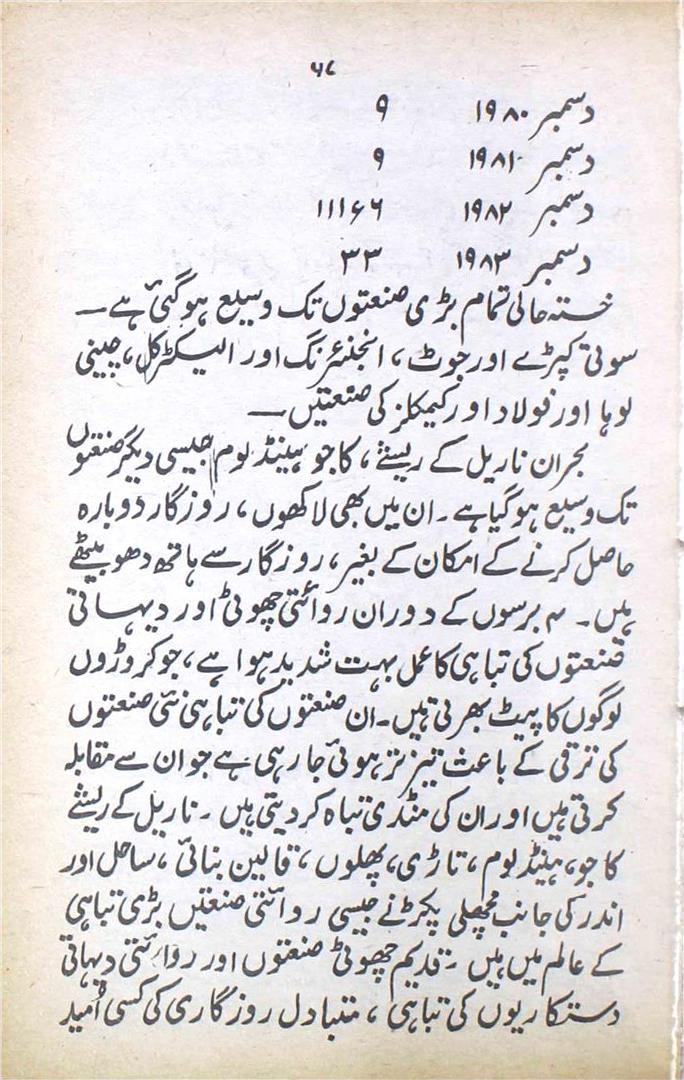 ۵۷
دسمبر ۱۹۸۰ ۹
دسمبر ۱۹۸۱ ۹
دسمبر ۱۹۸۲ ۱۱۱۶۶
دسمبر ۱۹۸۳ ۳۳
خستہ حالی تمام بڑی صنعتوں تک وسیع ہو گئی ہے۔
سوتی کپڑے اور جوٹ، انجنئرنگ اور الیکٹرکل، چینی
لوہا اور فولاد اور کیمکلز کی صنعتیں۔
بحران ناریل کے ریشے، کاجو ہینڈ لوم جیسی دیگر صنعتوں
تک وسیع ہو گیا ہے۔ ان میں بھی لاکھوں، روزگار دوبارہ
حاصل کرنے کے امکان کے بغیر، روزگار سے ہاتھ دھو بیٹھے
ہیں۔ ۳ برسوں کے دوران روائتی چھوٹی اور دیہاتی
صنعتوں کی تباہی کا عمل بہت شدید ہوا ہے، جو کروڑوں
لوگوں کا پیٹ بھرتی ہیں۔ ان صنعتوں کی تباہی نئی صنعتوں
کی ترقی کے باعث تیز تر ہوئی جا رہی ہے جو ان سے مقابلہ
کرتی ہیں اور ان کی منڈی تباہ کر دیتی ہیں۔ ناریل کے ریشے
کاجو، ہینڈ لوم، تاڑی، پھلوں، قالین بنائی، ساحل اور
اندر کی جانب مچھلی پکڑنے جیسی روائتی صنعتیں بڑی تباہی
کے عالم میں ہیں۔ قدیم چھوٹی صنعتوں اور روائتی دیہاتی
دستکاریوں کی تباہی، متبادل روزگاری کی کسی اُمید